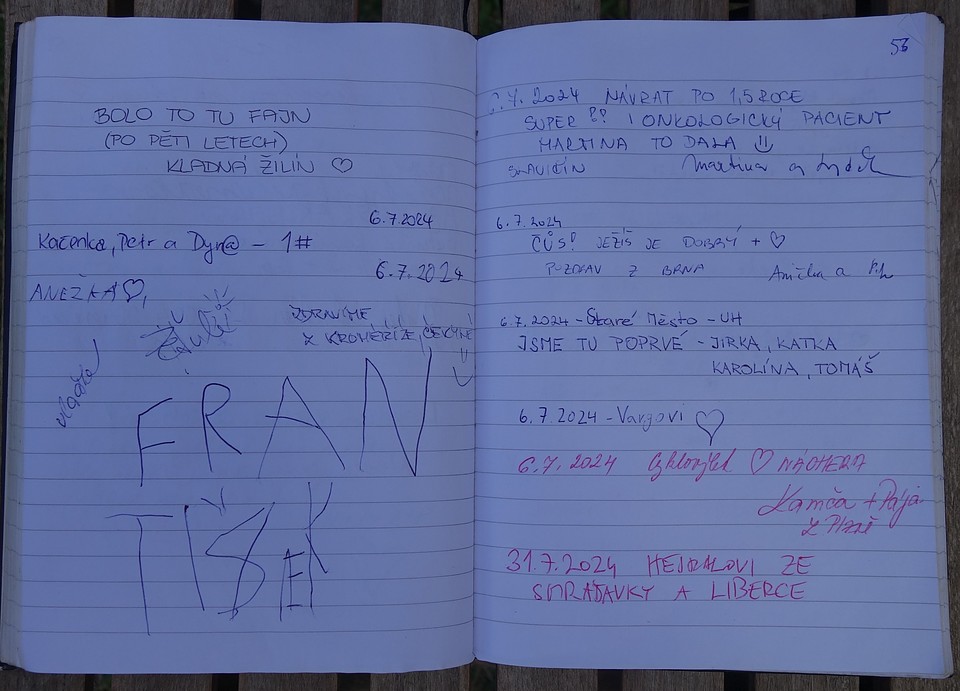 BOLO TO TU FAJN
(PO PĚTI LETECH)
KLADNÁ ŽILÍN ♡
6.7.2024
Kačenka, Petr a Dyn@ - 1#
6.7.2024
ANEŽKA ♡,
ZDRAVÍME
Z KROMĚŘÍŽE,
FRAN
TIŠEK
53
2024 NÁVRAT PO 1,5 ROCE
SUPER !! I ONKOLOGICKÝ PACIENT
MARTINA TO DALA
SLAVIČÍN Martina a
6.7.2024
ČŮS! JEŽÍŠ JE DOBRÝ + ♡
POZDRAV Z BRNA a
6.7.2024 - Staré Město - UH
JSME TU POPRVÉ - JIRKA, KATKA
KAROLÍNA, TOMÁŠ
6.7.2024 - Vargovi ♡
6.7.2024 Cyklovýlet ♡ NÁDHERA
Kamča + Pája
Z Plzně
31.7.2024 HEJRALOVI ZE
SMRAĎAVKY A LIBERCE